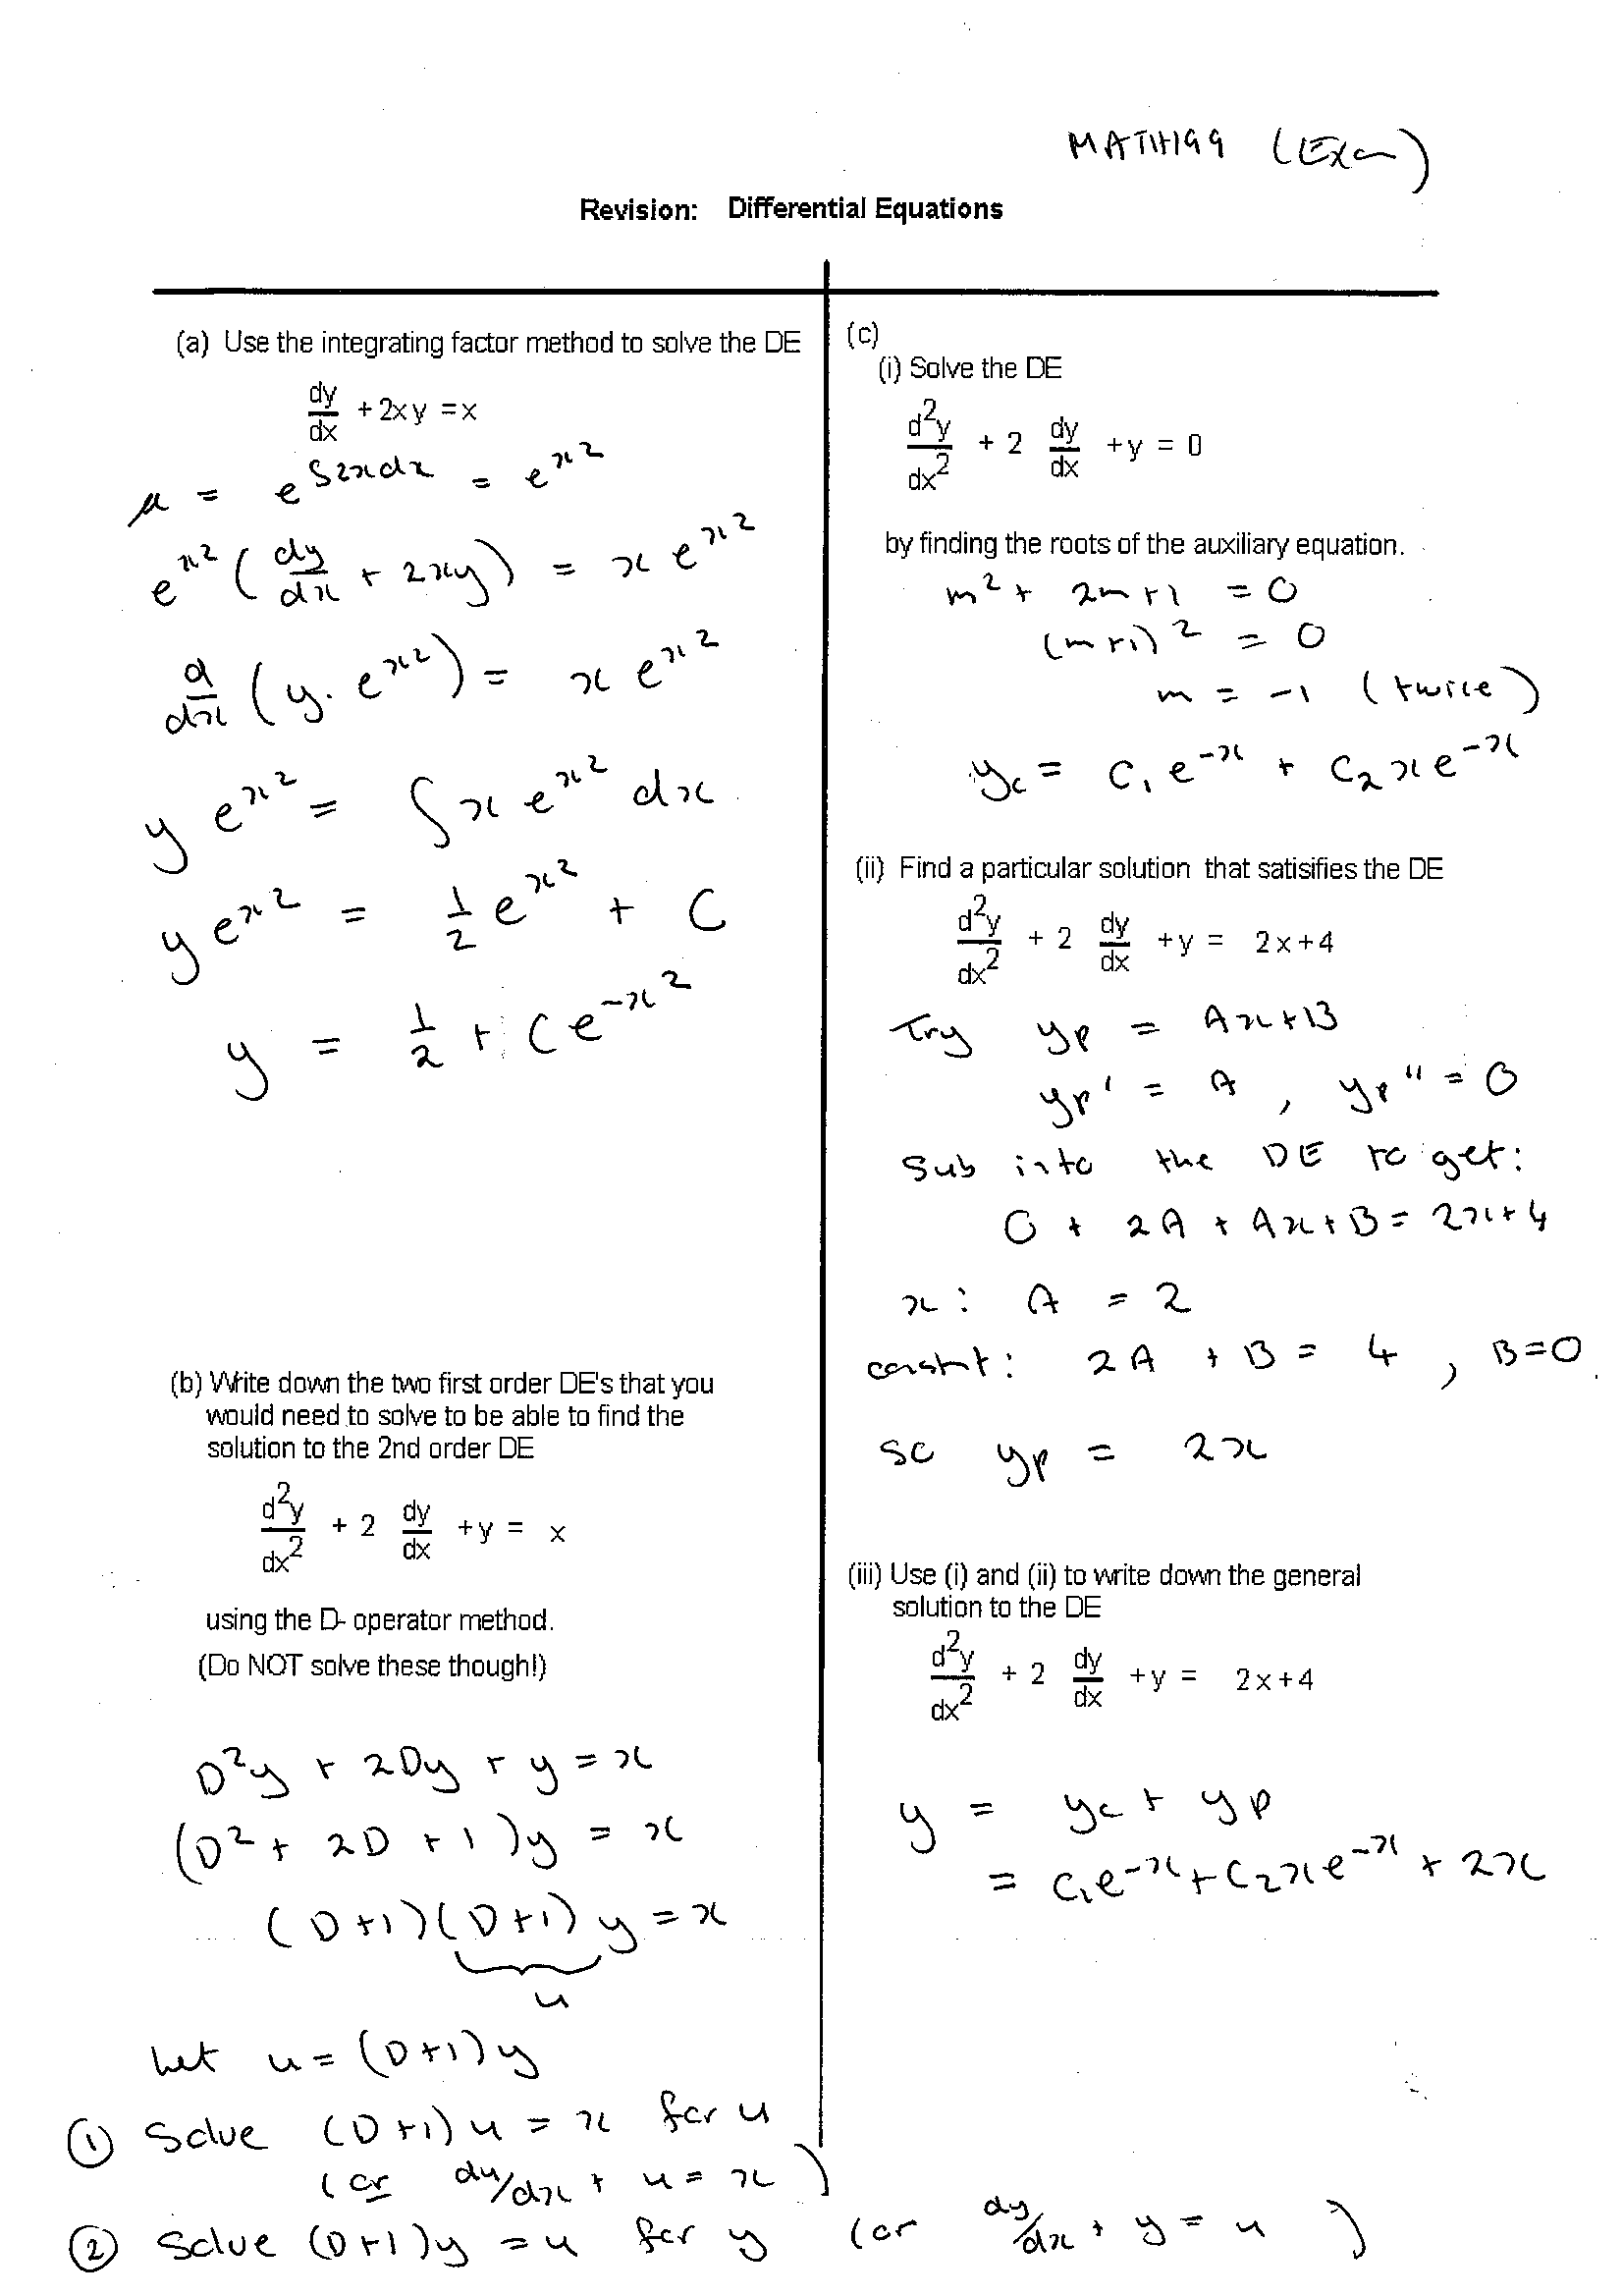 MATH199 (Exam)
Revision: Differential Equations
(a) Use the integrating factor method to solve the DE
dy/dx + 2xy = x
μ = e^∫2xdx = e^x²
e^x² (dy/dx + 2xy) = x e^x²
d/dx (y. e^x²) = x e^x²
y e^x² = ∫ x e^x² dx
y e^x² = 1/2 e^x² + C
y = 1/2 + C e^-x²
(b) Write down the two first order DE's that you
would need to solve to be able to find the
solution to the 2nd order DE
d²y/dx² + 2 dy/dx + y = x
using the D- operator method.
(Do NOT solve these though!)
D²y + 2Dy + y = x
(D² + 2D + 1)y = x
(D+1)(D+1)y = x
u
Let u = (D+1)y
① Solve (D+1)u = x for u
(or du/dx + u = x)
② Solve (D+1)y = u for y (or dy/dx + y = u)
(c)
(i) Solve the DE
d²y/dx² + 2 dy/dx + y = 0
by finding the roots of the auxiliary equation.
m² + 2m+1 = 0
(m+1)² = 0
m = -1 (twice)
yc = C₁e^-x + C₂xe^-x
(ii) Find a particular solution that satisifies the DE
d²y/dx² + 2 dy/dx + y = 2x+4
Try yp = Ax+B
yp' = A , yp'' = 0
Sub into the DE to get:
0 + 2A + Ax+B = 2x+4
x: A = 2
constnt: 2A + B = 4 , B=0.
so yp = 2x
(iii) Use (i) and (ii) to write down the general
solution to the DE
d²y/dx² + 2 dy/dx + y = 2x+4
y = yc + yp
= C₁e^-x + C₂xe^-x + 2x